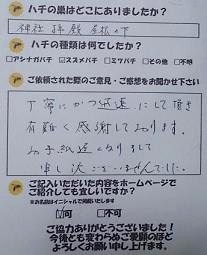 ハチの巣はどこにありましたか？
神社 拝殿 屋根の下
ハチの種類は何でしたか？
□アシナガバチ ☑スズメバチ □ミツバチ □その他 □不明
ご依頼された際のご意見・ご感想をお聞かせ下さい
丁寧にかつ迅速にして頂き
有難く感謝しております。
お手紙遅くなりまして
申し訳ございませんでした。
ご記入いただいた内容をホームページで
ご紹介しても宜しいですか？
※お名前はイニシャルで掲載いたします
☑可 □不可
ご協力ありがとうございました！
今後とも変わらぬご愛顧のほど
よろしくお願い申し上げます。